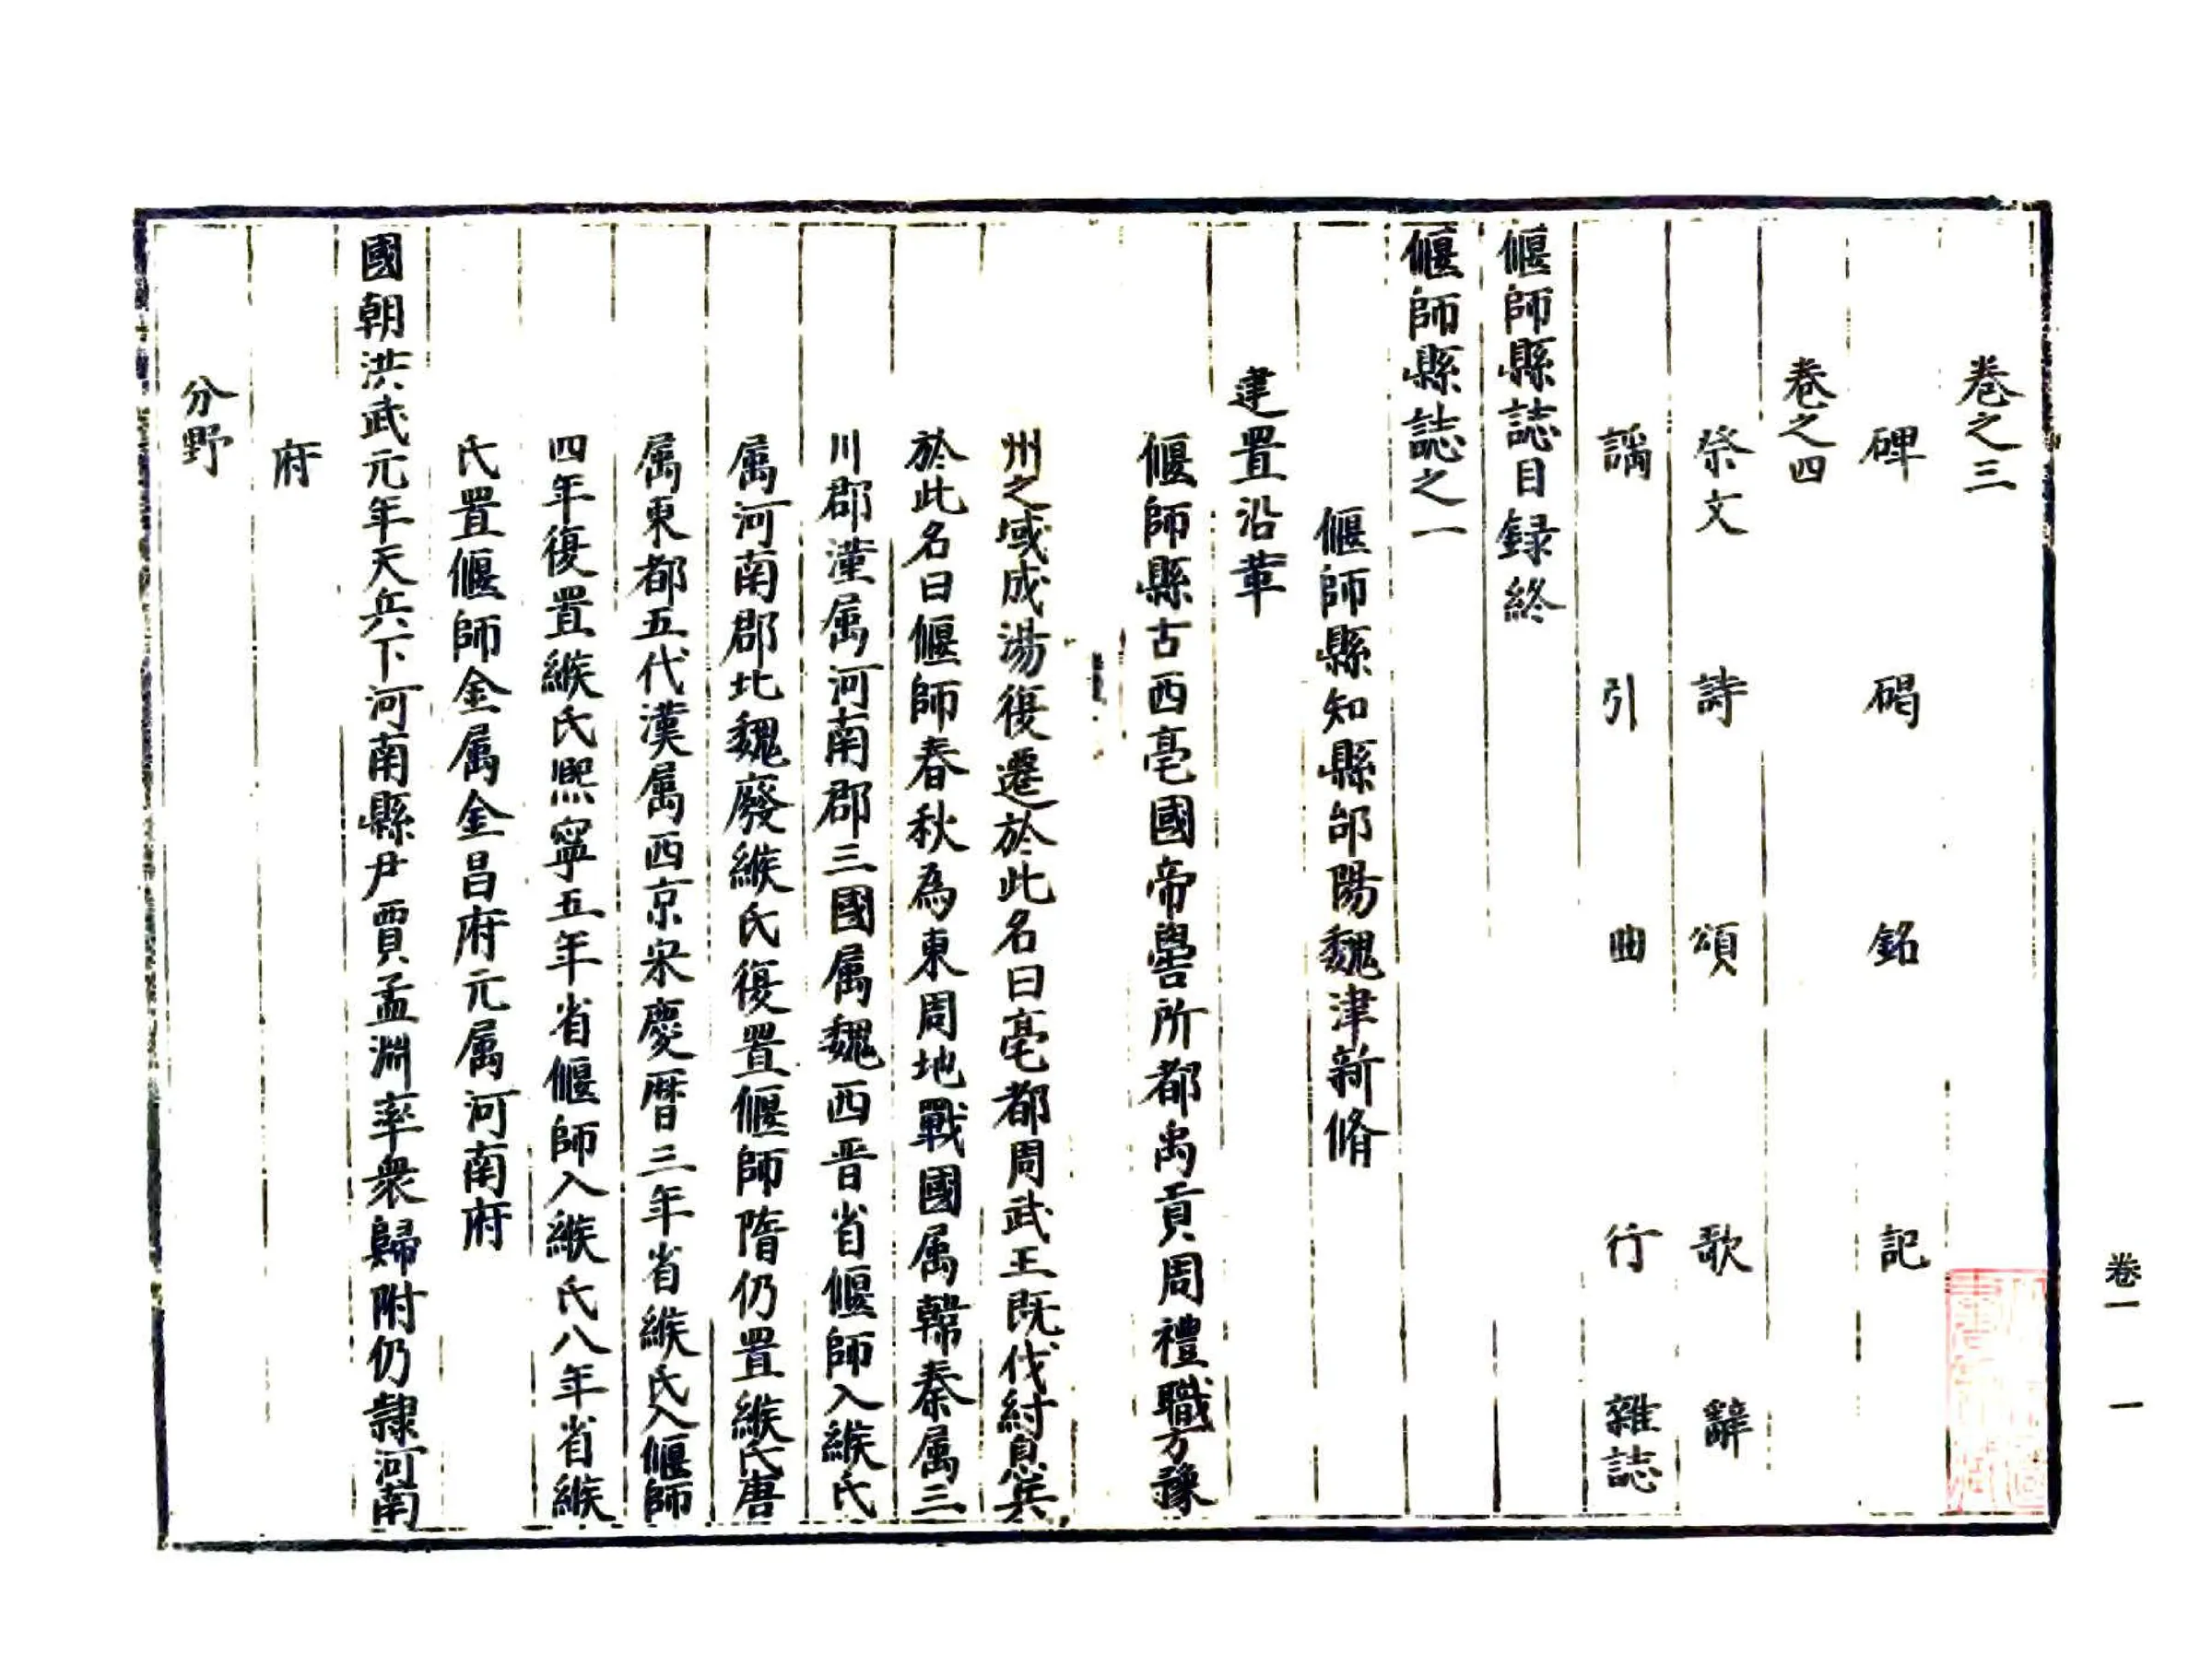 卷之三
碑 碣 銘 記
卷之四
祭文 詩 頌 歌 辭
謡 引 曲 行 雜誌
偃師縣誌目録終
偃師縣誌之一
偃師縣知縣邰陽魏津新脩
建置沿革
偃師縣古西亳國帝嚳所都禹貢周禮職方豫
州之域成湯復遷於此名曰亳都周武王既伐紂息兵
於此名曰偃師春秋為東周地戰國属韓秦属三
川郡漢属河南郡三國属魏西晋省偃師入緱氏
属河南郡北魏廢緱氏復置偃師隋仍置緱氏唐
属東都五代漢属西京宋慶曆三年省緱氏入偃師
四年復置緱氏熙寧五年省偃師入緱氏八年省緱
氏置偃師金属金昌府元属河南府
國朝洪武元年天兵下河南縣尹賈孟淵率衆歸附仍隸河南
府
分野
卷一
一